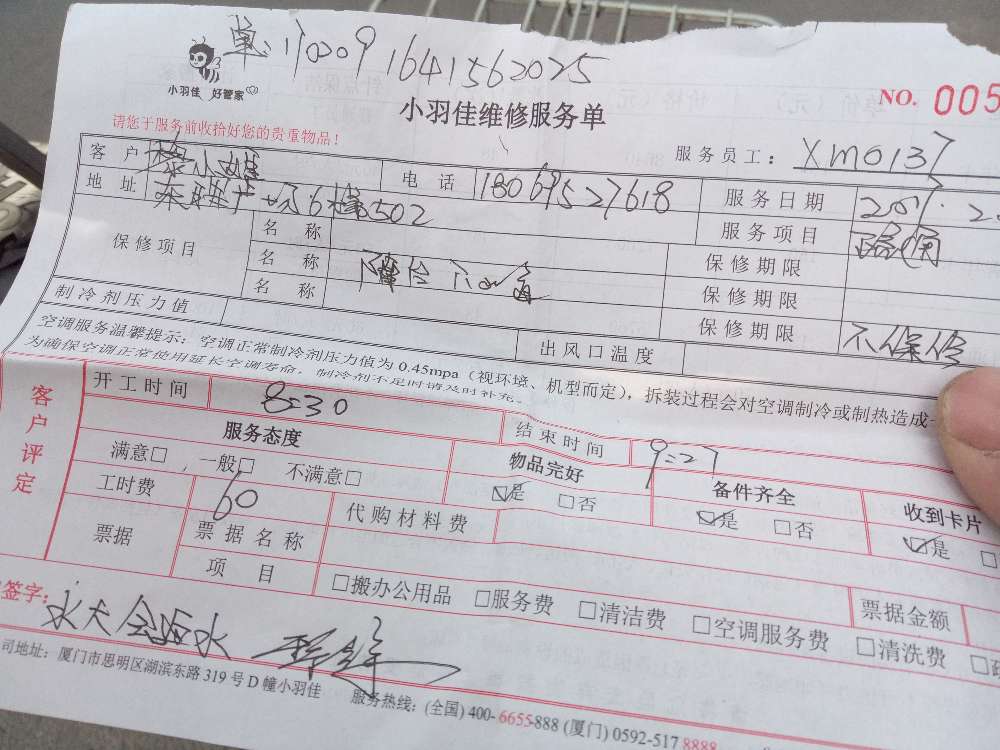 单:170209 1641562025
小羽佳 好管家
小羽佳维修服务单
NO. 005
请您于服务前收拾好您的贵重物品!
服务员工: XM0137
客户 小姐 电话 18069527618 服务日期 2017.2.
地址 6楼502 服务项目 疏通
保修项目 名称 保修期限
名称 保修期限
名称 保修期限 不保修
制冷剂压力值 出风口温度
空调服务温馨提示: 空调正常制冷剂压力值为 0.45mpa (视环境、机型而定), 拆装过程会对空调制冷或制热造成一
为确保空调正常使用延长空调寿命, 制冷剂不足时请及时补充。
客户评定
开工时间 8:30 结束时间 9:27
服务态度 物品完好 备件齐全 收到卡片
满意□ , 一般□ 不满意□ ☑是 □否 ☑是 □否 ☑是 □
工时费 60 代购材料费
票据 票据名称 □搬办公用品 □服务费 □清洁费 □空调服务费 □清洗费
项目 票据金额
签字:
司地址: 厦门市思明区湖滨东路 319 号 D 幢小羽佳 服务热线: (全国) 400-6655-888 (厦门) 0592-517 8888